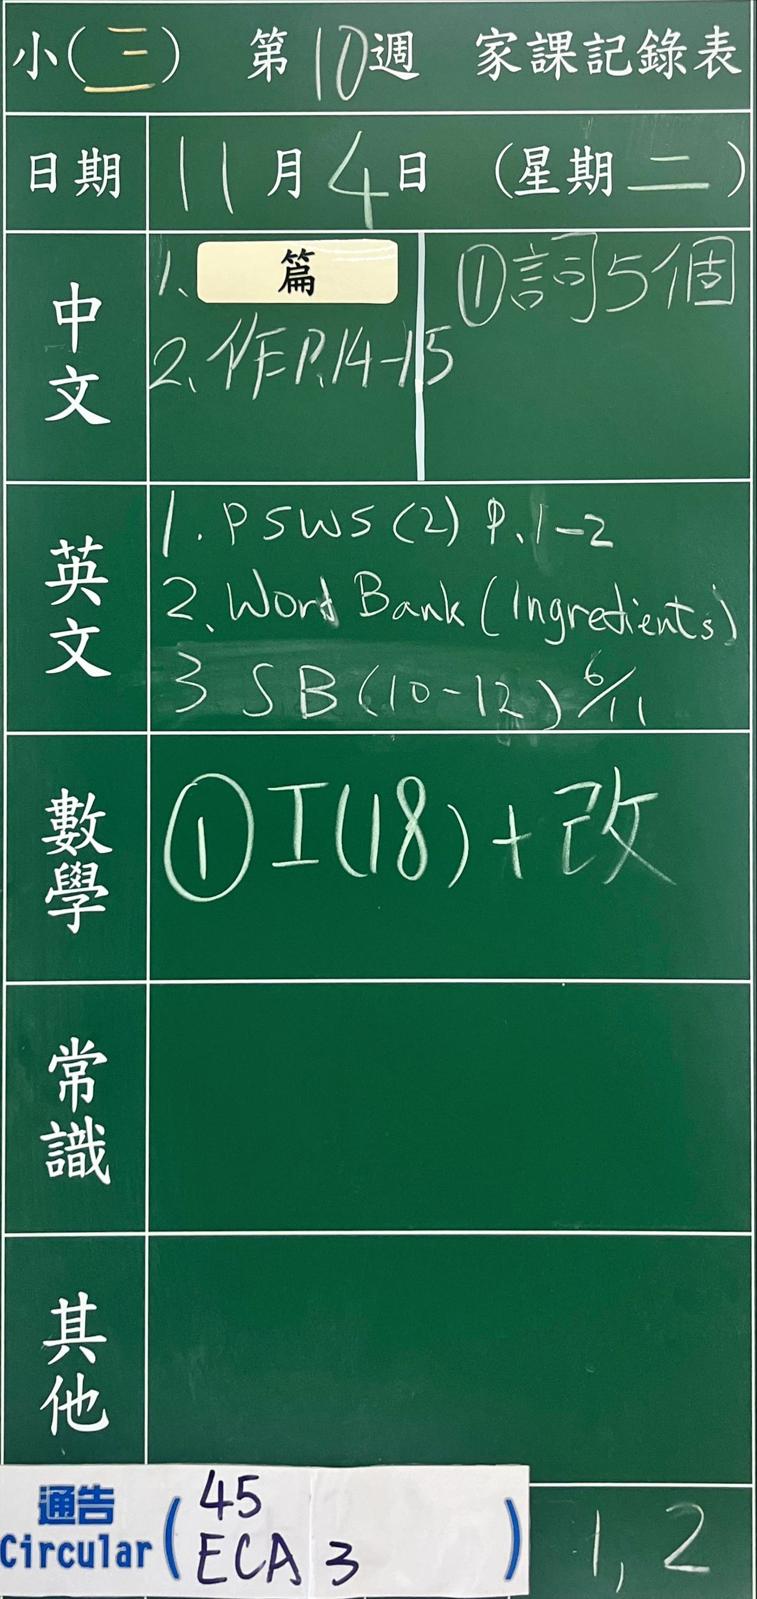 小(三) 第10週 家課記錄表
日期 11月4日 (星期二)
中文
1. 篇
2. 作P.14-15
①詞5個
英文
1. PSWS(2) P.1-2
2. Word Bank (Ingredients)
3 SB(10-12) 6/11
數學
①工(18)+改
常識
其他
通告 Circular ( 45 ECA 3 )
1, 2